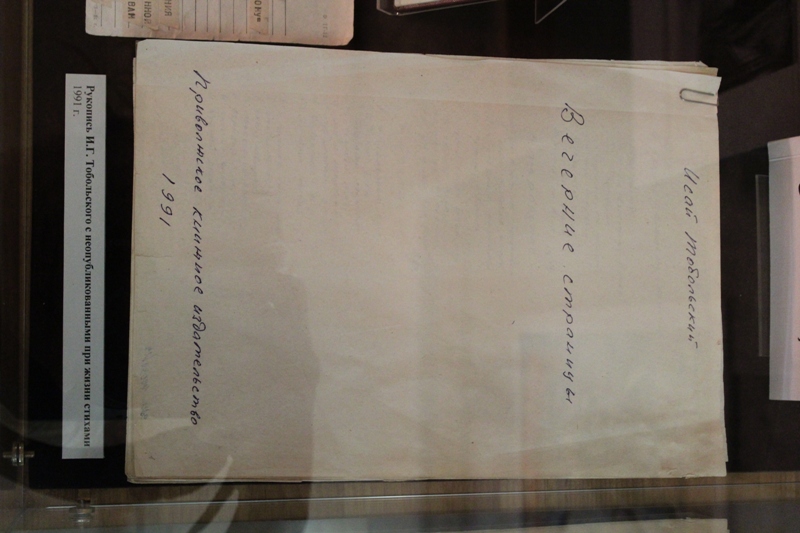 Исай Тобольский
Вечерние страницы
Приволжское книжное издательство
1991
Рукопись И.Г. Тобольского с неопубликованными при жизни стихами
1991 г.